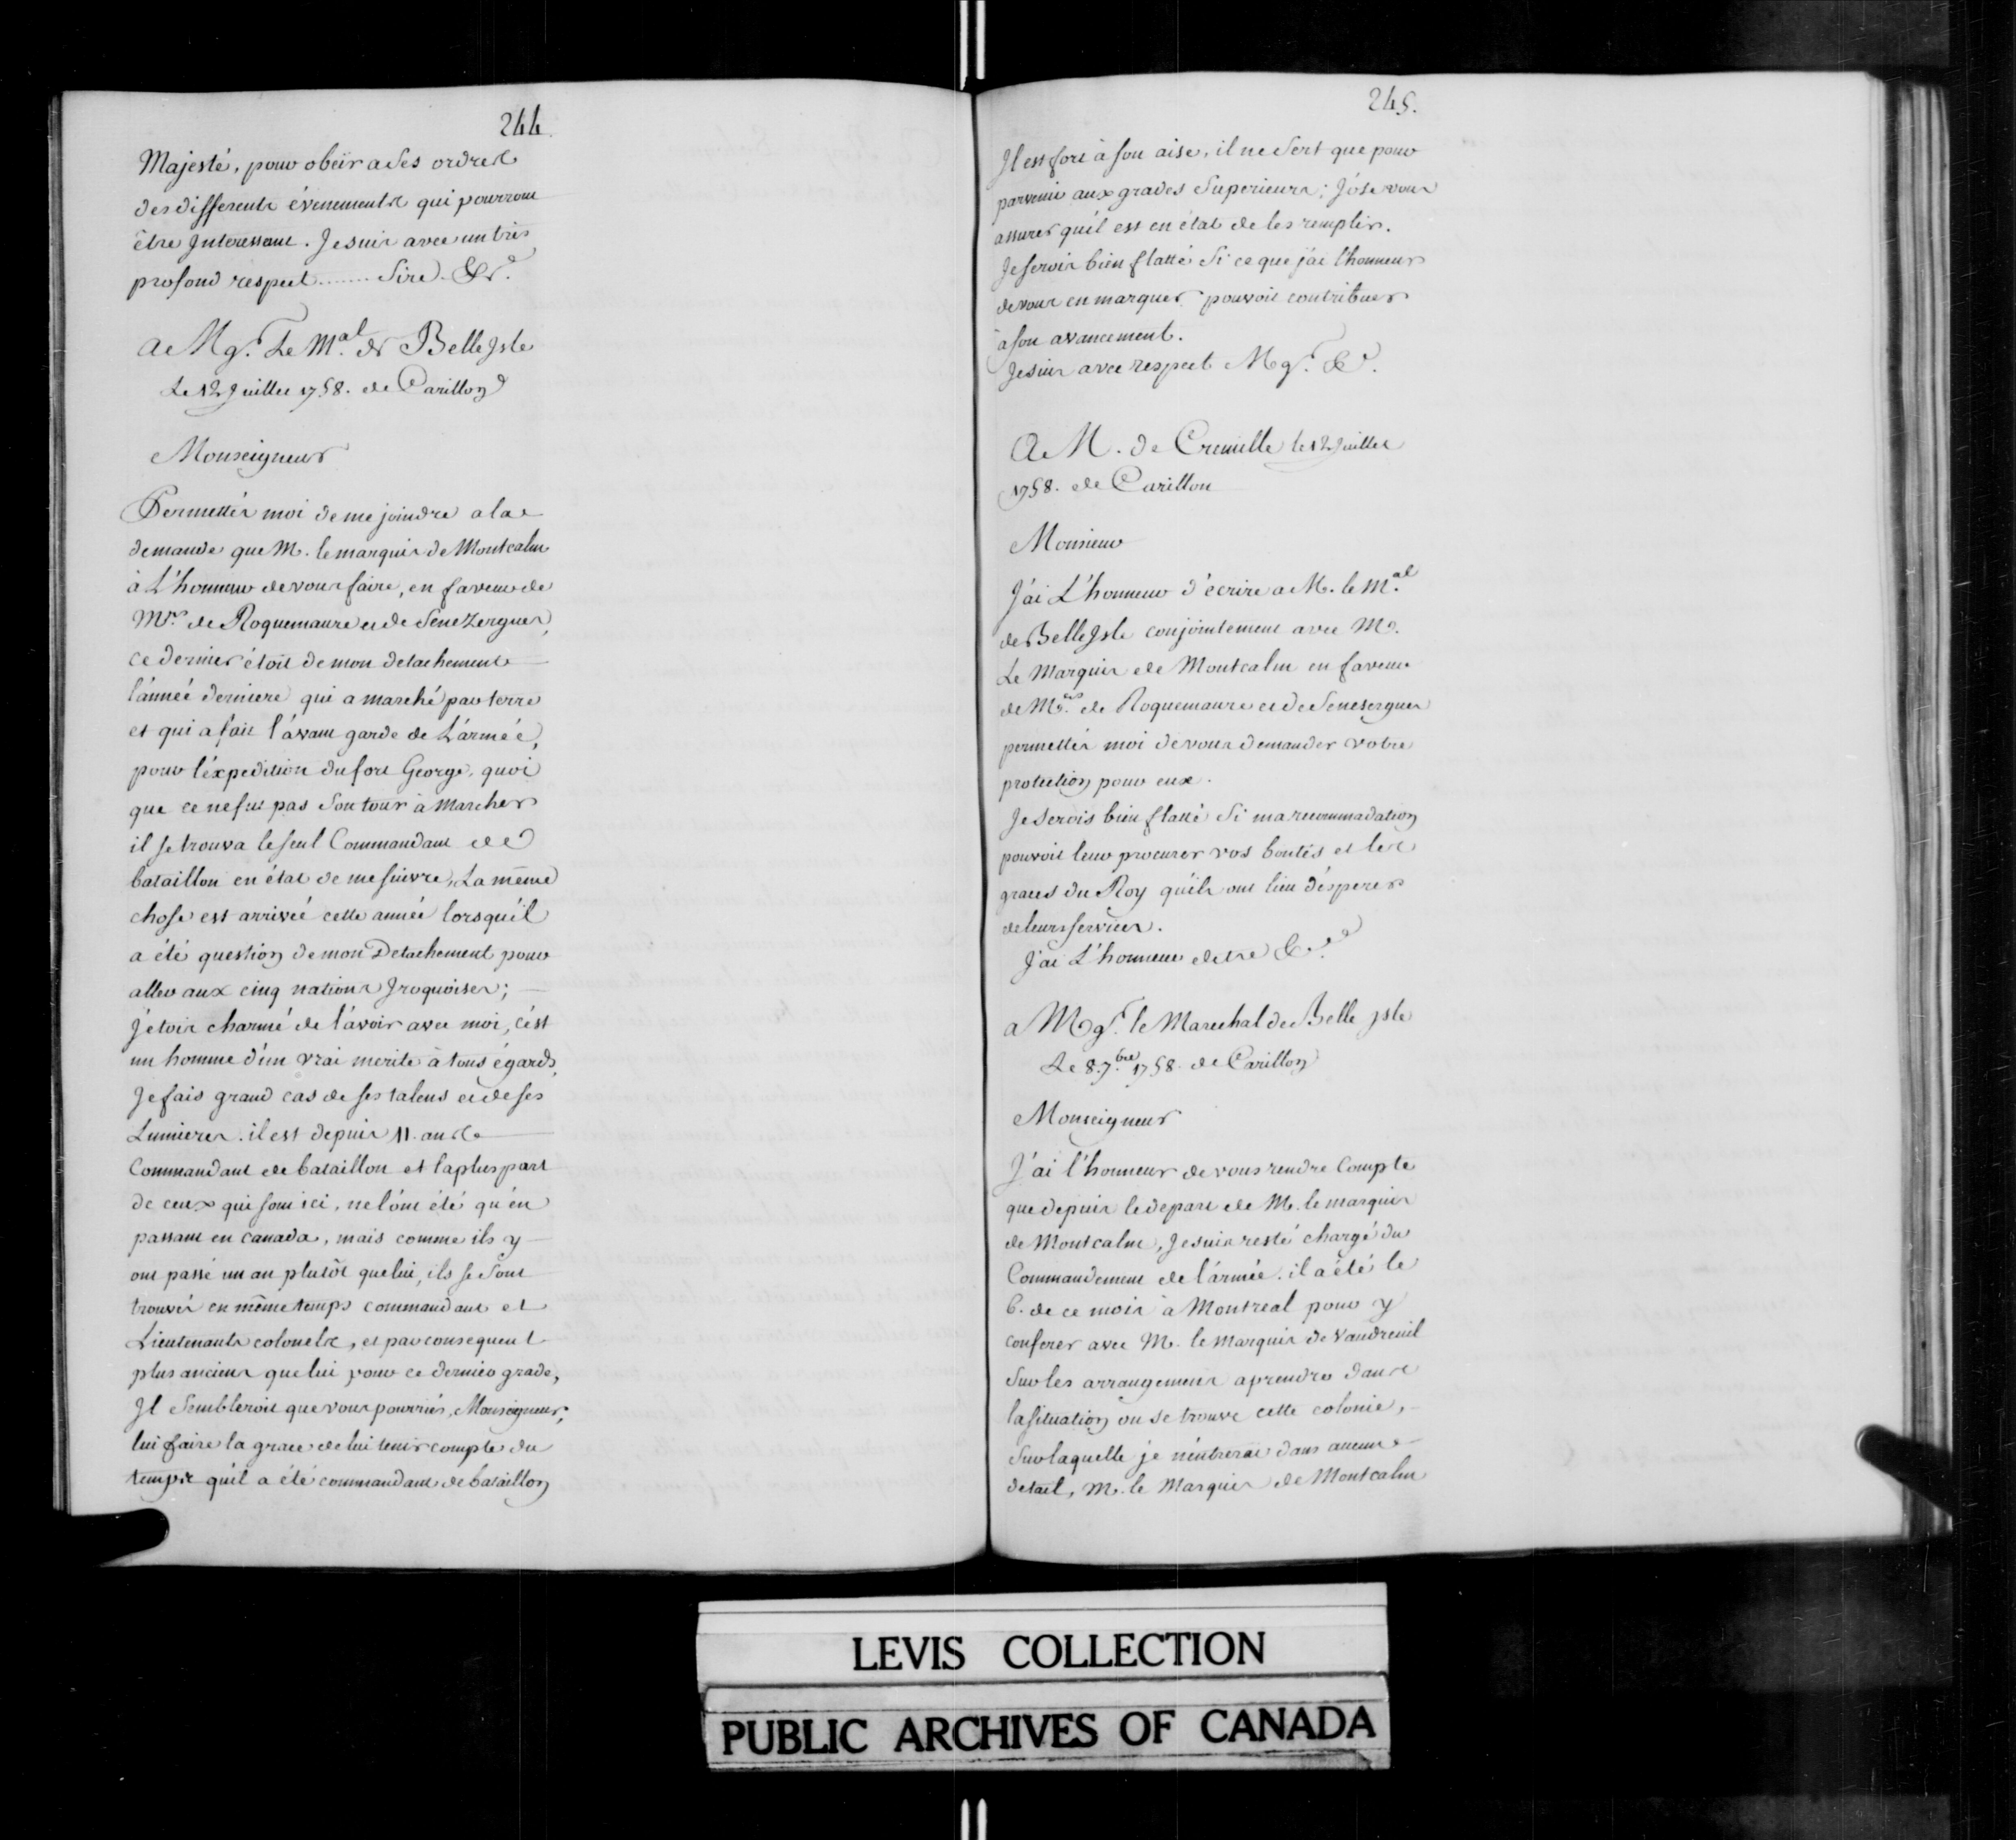 244.
Majesté, pour obeïr a Ses ordres
des differents évenements qui pourront
être Jnteressant. Je suis avec un très
profond respect ....... Sire. &a.
A Mgr. Le Mal. de Belle Jsle
Le 12 Juillet 1758. de Carillon
Monseigneur
Permettés moi de me joindre a la
demande que M. le marquis de Montcalm
à L'honneur de vous faire, en faveur de
Mrs. de Roquemaure et de Senezergues,
ce dernier étoit de mon detachement
l'année derniere qui a marché par terre
et qui a fait l'ávant garde de L'ármée,
pour l'éxpedition du fort George, quoi
que ce ne fut pas Son tour à Marcher
il se trouva le seul Commandant de
bataillon en état de me suivre, La même
chose est arrivée cette année lorsqu'il
a été question de mon Detachement pour
aller aux cinq nations Jroquoises;
J'étois charmé de l'ávoir avec moi, c'ést
un homme d'ún vrai merite à tous égards,
Je fais grand cas de ses talens et de ses
Lumieres. il est depuis 11. ans
Commandant de bataillon et la plus part
de ceux qui sont ici, ne l'ónt été qu'én
passant en canada, mais comme ils y
ont passé un an plutôt que lui, ils se Sont
trouvés en même temps commandant et
Lieutenants colonels, et par consequent
plus anciens que lui pour ce dernier grade,
Jl Sembleroit que vous pourriés, Monseigneur,
lui faire la grace de lui tenir compte du
temps qu'il a été commandant de bataillon
245.
Jl est fort à son aise, il ne Sert que pour
parvenir aux grades Superieurs; J'óse vous
assurer qu'il est en état de les remplir.
Je serois bien flatté Si ce que j'ai l'honneur
de vous en marquer pouvoit contribuer
à son avancement.
Je suis avec respect Mgr. &a.
A M. de Cremille le 12 Juillet
1758. de Carillon
Monsieur
J'ai L'honneur d'écrire a M. le Mal.
de Belle Jsle conjointement avec M.
Le Marquis de Montcalm en faveur
de Mrs. de Roquemaure et de Senesergues
permettés moi de vous demander votre
protection pour eux.
Je Serois bien flatté Si ma recommadation
pouvoit leur procurer vos bontés et les
graces du Roy qu'ils ont lieu d'ésperer
de leurs services.
J'ai L'honneur detre &a.
a Mgr. le Marechal de Belle Jsle
Le 8. 7.bre 1758. de Carillon
Monseigneur
J'ai l'honneur de vous rendre Compte
que depuis le depart de M. le marquis
de Montcalm, Je suis resté chargé du
Commandement de l'ármée. il a été le
6. de ce mois à Montreal pour y
conferer avec M. le Marquis de Vaudreuil
Sur les arrangemens a prendre dans
la situation ou se trouve cette colonie,
Sur laquelle je n'éntrerai dans aucun
detail, M. le Marquis de Montcalm
LEVIS COLLECTION
PUBLIC ARCHIVES OF CANADA